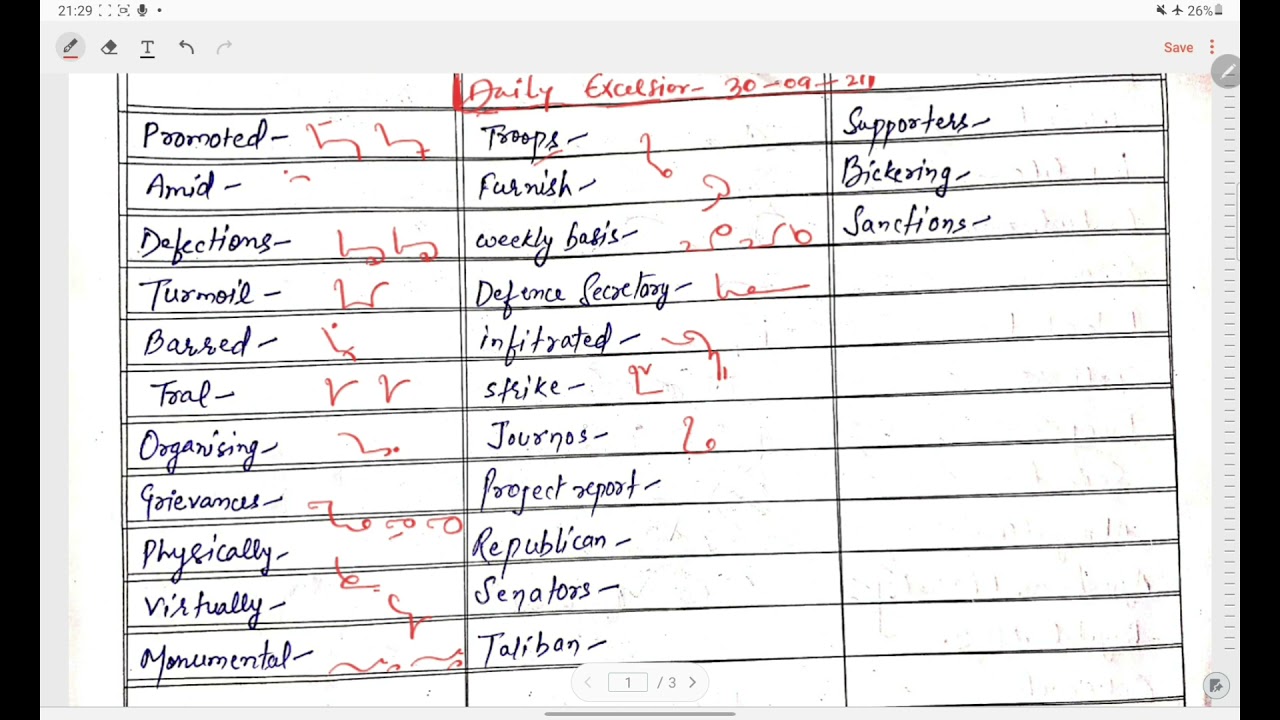 21:29
26%
T
Save
Daily Excelsior- 30-09-21
Promoted-
Amid-
Defections-
Turmoil-
Barred-
Tral-
Organising-
Grievances-
Physically-
Virtually-
Monumental-
Troops-
Furnish-
weekly basis-
Defence Secretory-
infitrated-
strike-
Journos-
Project report-
Republican-
Senators-
Taliban-
Supporters-
Bickering-
Sanctions-
1 / 3